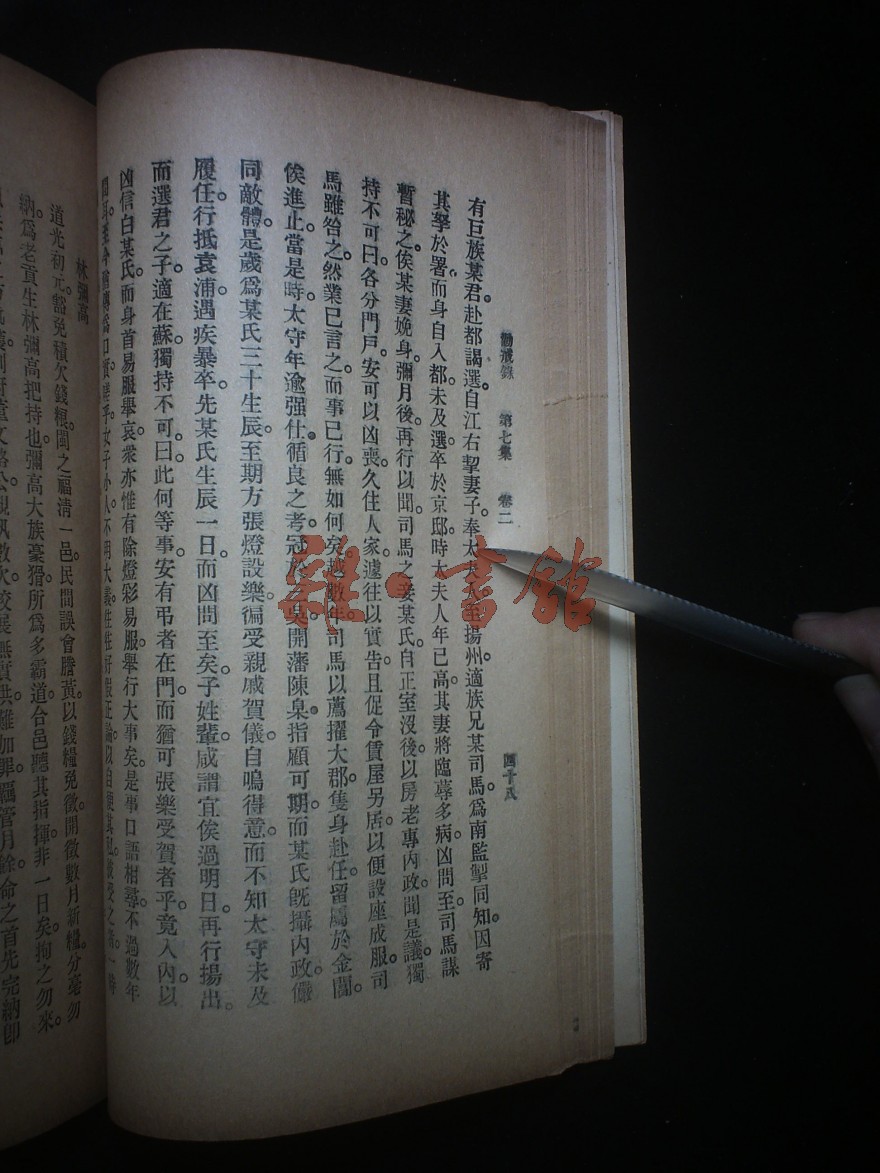 勸戒錄 第七集 卷二 四十八
有巨族某君。赴都謁選。自江右挈妻子。奉太夫人至揚州。適族兄某司馬爲南監掣同知。因寄
其孥於署。而身自入都。未及選。卒於京邸。時太夫人年已高。其妻將臨蓐多病。凶問至。司馬謀
暫秘之。俟某妻娩身彌月後。再行以聞。司馬之妾某氏。自正室沒後。以房老專內政。聞是議。獨
持不可。曰。各分門戶。安可以凶喪久住人家。遽往以實告。且促令賃屋另居。以便設座成服。司
馬雖咎之。然業已言之。而事已行。無如何矣。越數年。司馬以薦擢大郡。隻身赴任。留屬於金閶。
俟進止。當是時。太守年逾强仕。循良之考。冠於三吳。開藩陳臬。指顧可期。而某氏旣攝內政。儼
同敵體。是歲爲某氏三十生辰。至期方張燈設樂。徧受親戚賀儀。自鳴得意。而不知太守未及
履任。行抵袁浦。遇疾暴卒。先某氏生辰一日。而凶問至矣。子姓輩咸謂宜俟過明日。再行揚出。
而選君之子。適在蘇。獨持不可。曰。此何等事。安有弔者在門。而猶可張樂受賀者乎。竟入內以
凶信白某氏。而身首易服舉哀。衆亦惟有除燈彩。易服舉行大事矣。是事口語相尋。不過數年
林彌高
道光初元。豁免積欠錢糧。閩之福清一邑。民間誤會謄黃。以錢糧免徵。開徵數月。新糧分毫勿
納。爲老貢生林彌高把持也。彌高大族豪猾。所爲多霸道。合邑聽其指揮。非一日矣。拘之勿來。
雜·書館